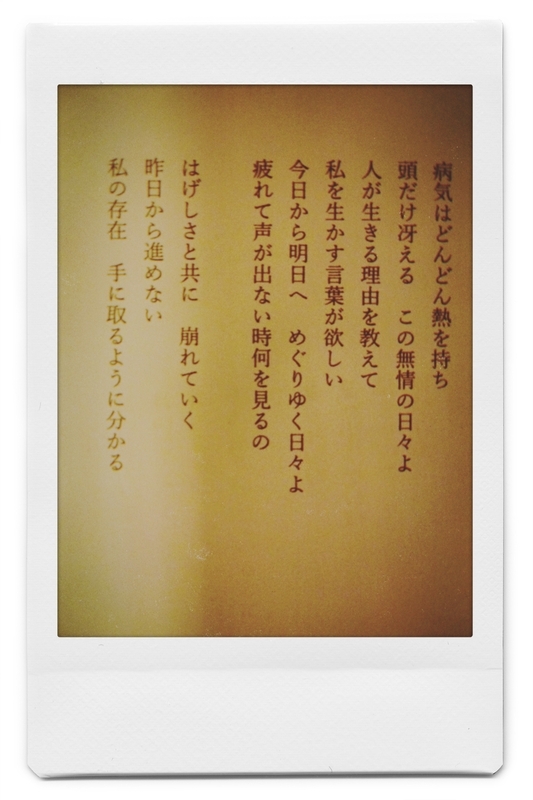 病気はどんどん熱を持ち
頭だけ冴える　この無情の日々よ
人が生きる理由を教えて
私を生かす言葉が欲しい
今日から明日へ　めぐりゆく日々よ
疲れて声が出ない時何を見るの
はげしさと共に　崩れていく
昨日から進めない
私の存在　手に取るように分かる